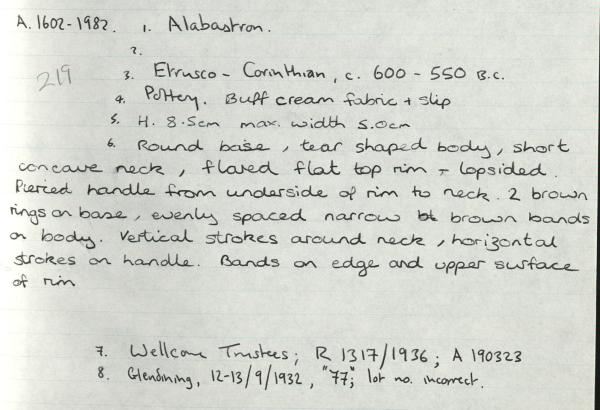 A.1602-1982. 1. Alabastron.
2.
219 3. Etrusco-Corinthian, c. 600-550 B.C.
4. Pottery. Buff cream fabric + slip
5. H. 8.5cm max. width 5.0cm
6. Round base, tear shaped body, short
concave neck, flared flat top rim - lopsided.
Pierced handle from underside of rim to neck. 2 brown
rings on base, evenly spaced narrow brown bands
on body. Vertical strokes around neck, horizontal
strokes on handle. Bands on edge and upper surface
of rim
7. Wellcome Trustees; R 1317/1936; A 190323
8. Glendining, 12-13/9/1932, "77"; lot no. incorrect.